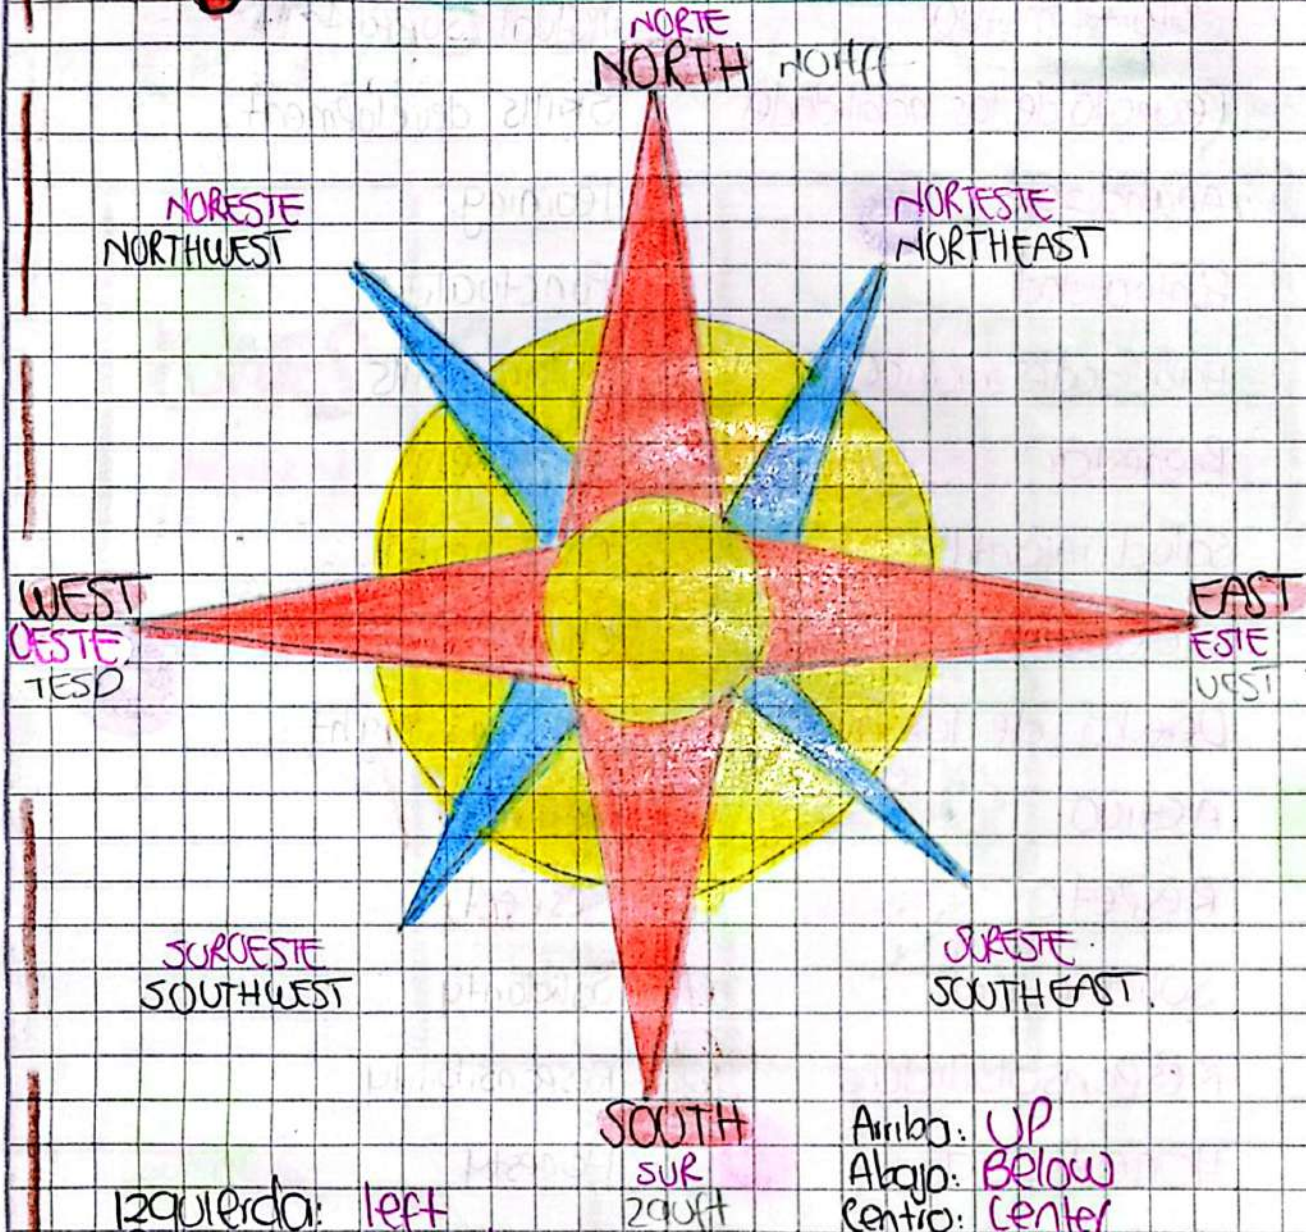 NORTE
NORTH
NORESTE
NORTHWEST
NORTESTE
NORTHEAST
WEST
OESTE
TESD
EAST
ESTE
UEST
SUROESTE
SOUTHWEST
SURESTE
SOUTHEAST.
SOUTH
SUR
Izquierda: left
Arriba: UP
Abajo: Below
Centro: Center